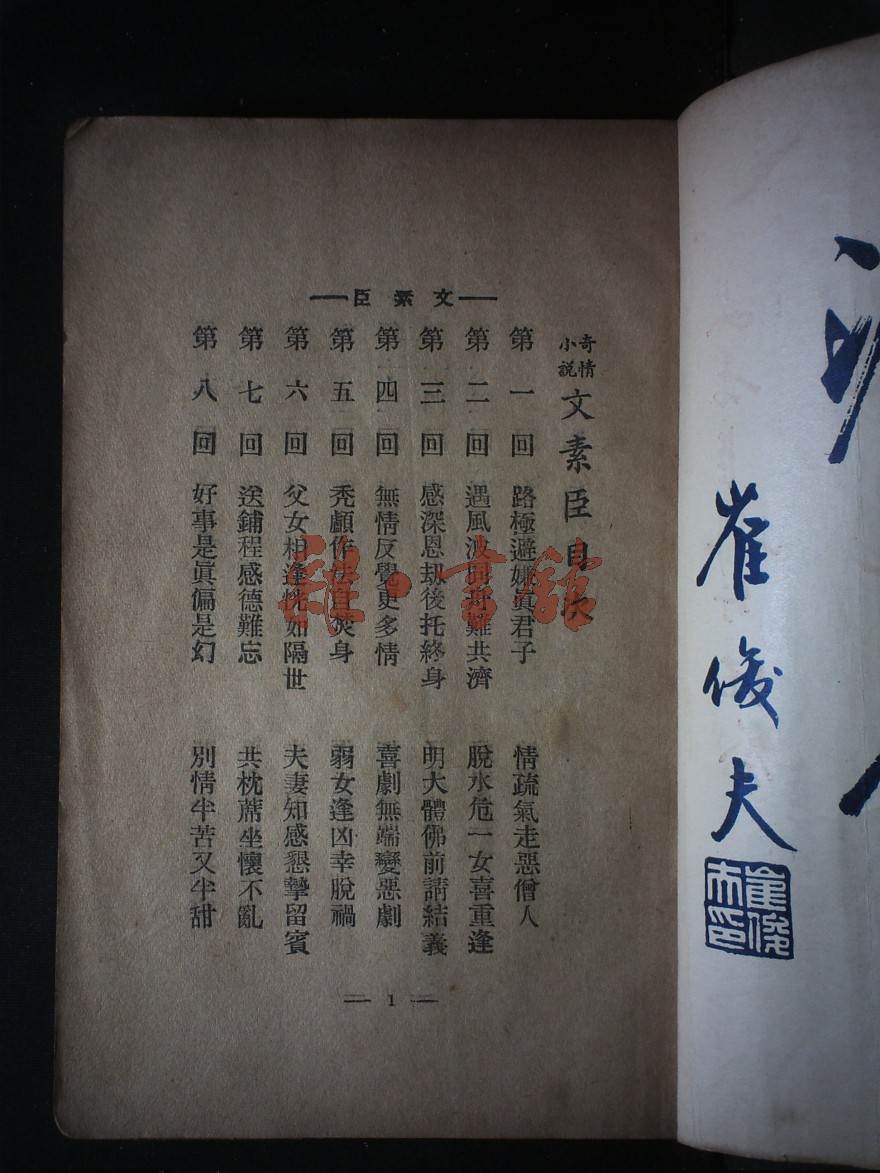 崔俊夫
崔俊夫印
文素臣
奇情小説 文素臣目次
第一回 路極避嫌眞君子 情疏氣走惡僧人
第二回 遇風波同舟難共濟 脫水危一女喜重逢
第三回 感深恩劫後托終身 明大體佛前請結義
第四回 無情反覺更多情 喜劇無端變惡劇
第五回 禿顱作法自焚身 弱女逢凶幸脫禍
第六回 父女相逢恍如隔世 夫妻知感懇摯留賓
第七回 送鋪程感德難忘 共枕蓆坐懷不亂
第八回 好事是眞偏是幻 別情半苦又半甜
1
雜·書館